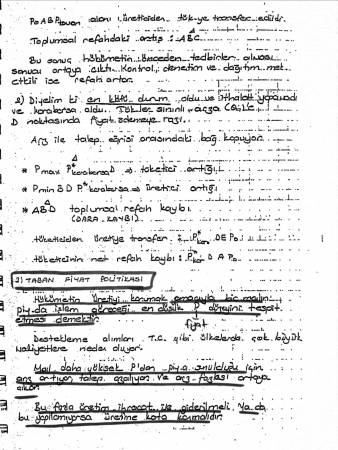 P₀ABP tavan alanı üreticiden tük-ye transfer edildi.
Toplumsal refahdaki artış : ABC
Bu sonuç hükümetin önceden tedbirler alması
sonucu ortaya çıktı. Kontrol, denetim ve dağıtım met.
etkili ise refah artar.
2) Diyelim ki en kötü durum oldu ve ithalat yapamadı
ve karaborsa oldu. Tük-ler sınırlı
D noktasında fiyat ödemeye razı.
Arz ile talep eğrisi arasındaki bağ kopuyor.
* P max P* karaborsa D → tüketici artığı
* P min B D P* karaborsa → üretici artığı
* ABD toplumsal refah kaybı
(DARA KAYBI)
tüketiciden üretiye transfer : P* kar. D E P₀
tüketicinin net refah kaybı : P* kar. D A P₀
3) TABAN FİYAT POLİTİKASI
Hükümetin üretiyi korumak amacıyla bir malın
piy-da işlem göreceği en düşük P düzeyini tespit
etmesi demektir. fiyat
Destekleme alımları T.C. gibi ülkelerde çok büyük
maliyetlere neden oluyor.
Mal daha yüksek P'dan piy-a sunulduğu için
arz artıyor talep azalıyor ve arz fazlası ortaya
çıkar.
Bu fazla üretim ihracat ile giderilmeli. Ya da
bu yapılamıyorsa üretime kota konmalıdır.